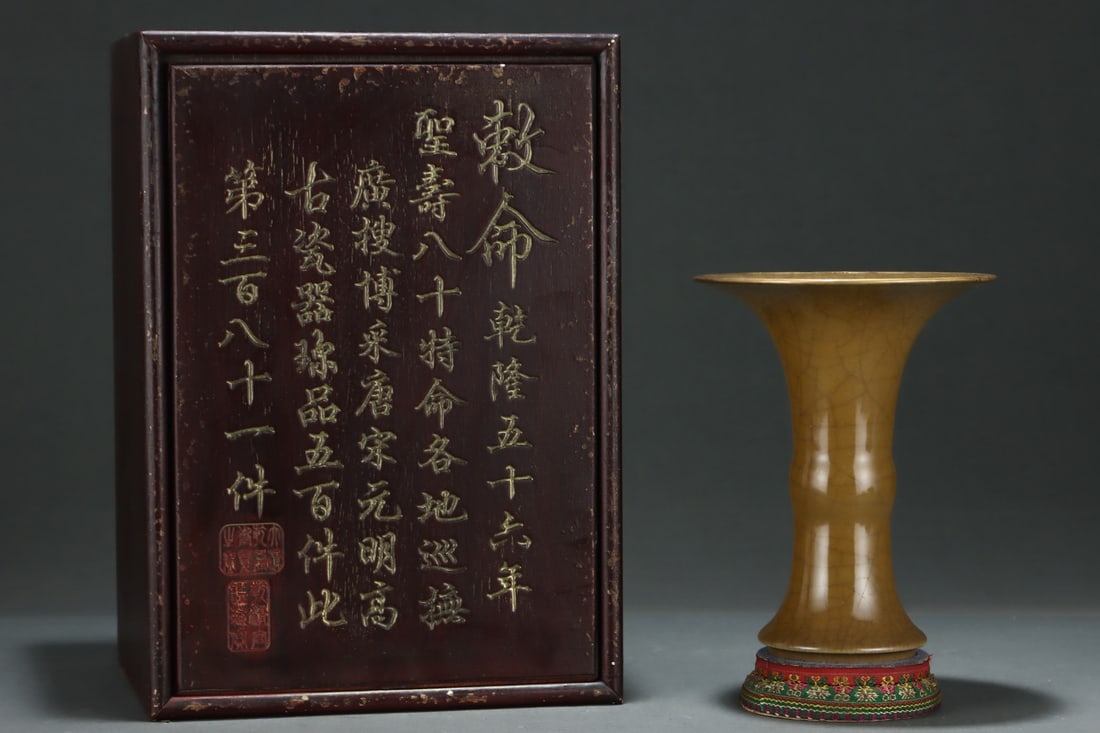 敕命乾隆五十年
聖壽八十特命各地巡撫
廣搜博采唐宋元明高
古瓷器珎品五百件此
第三百八十一件